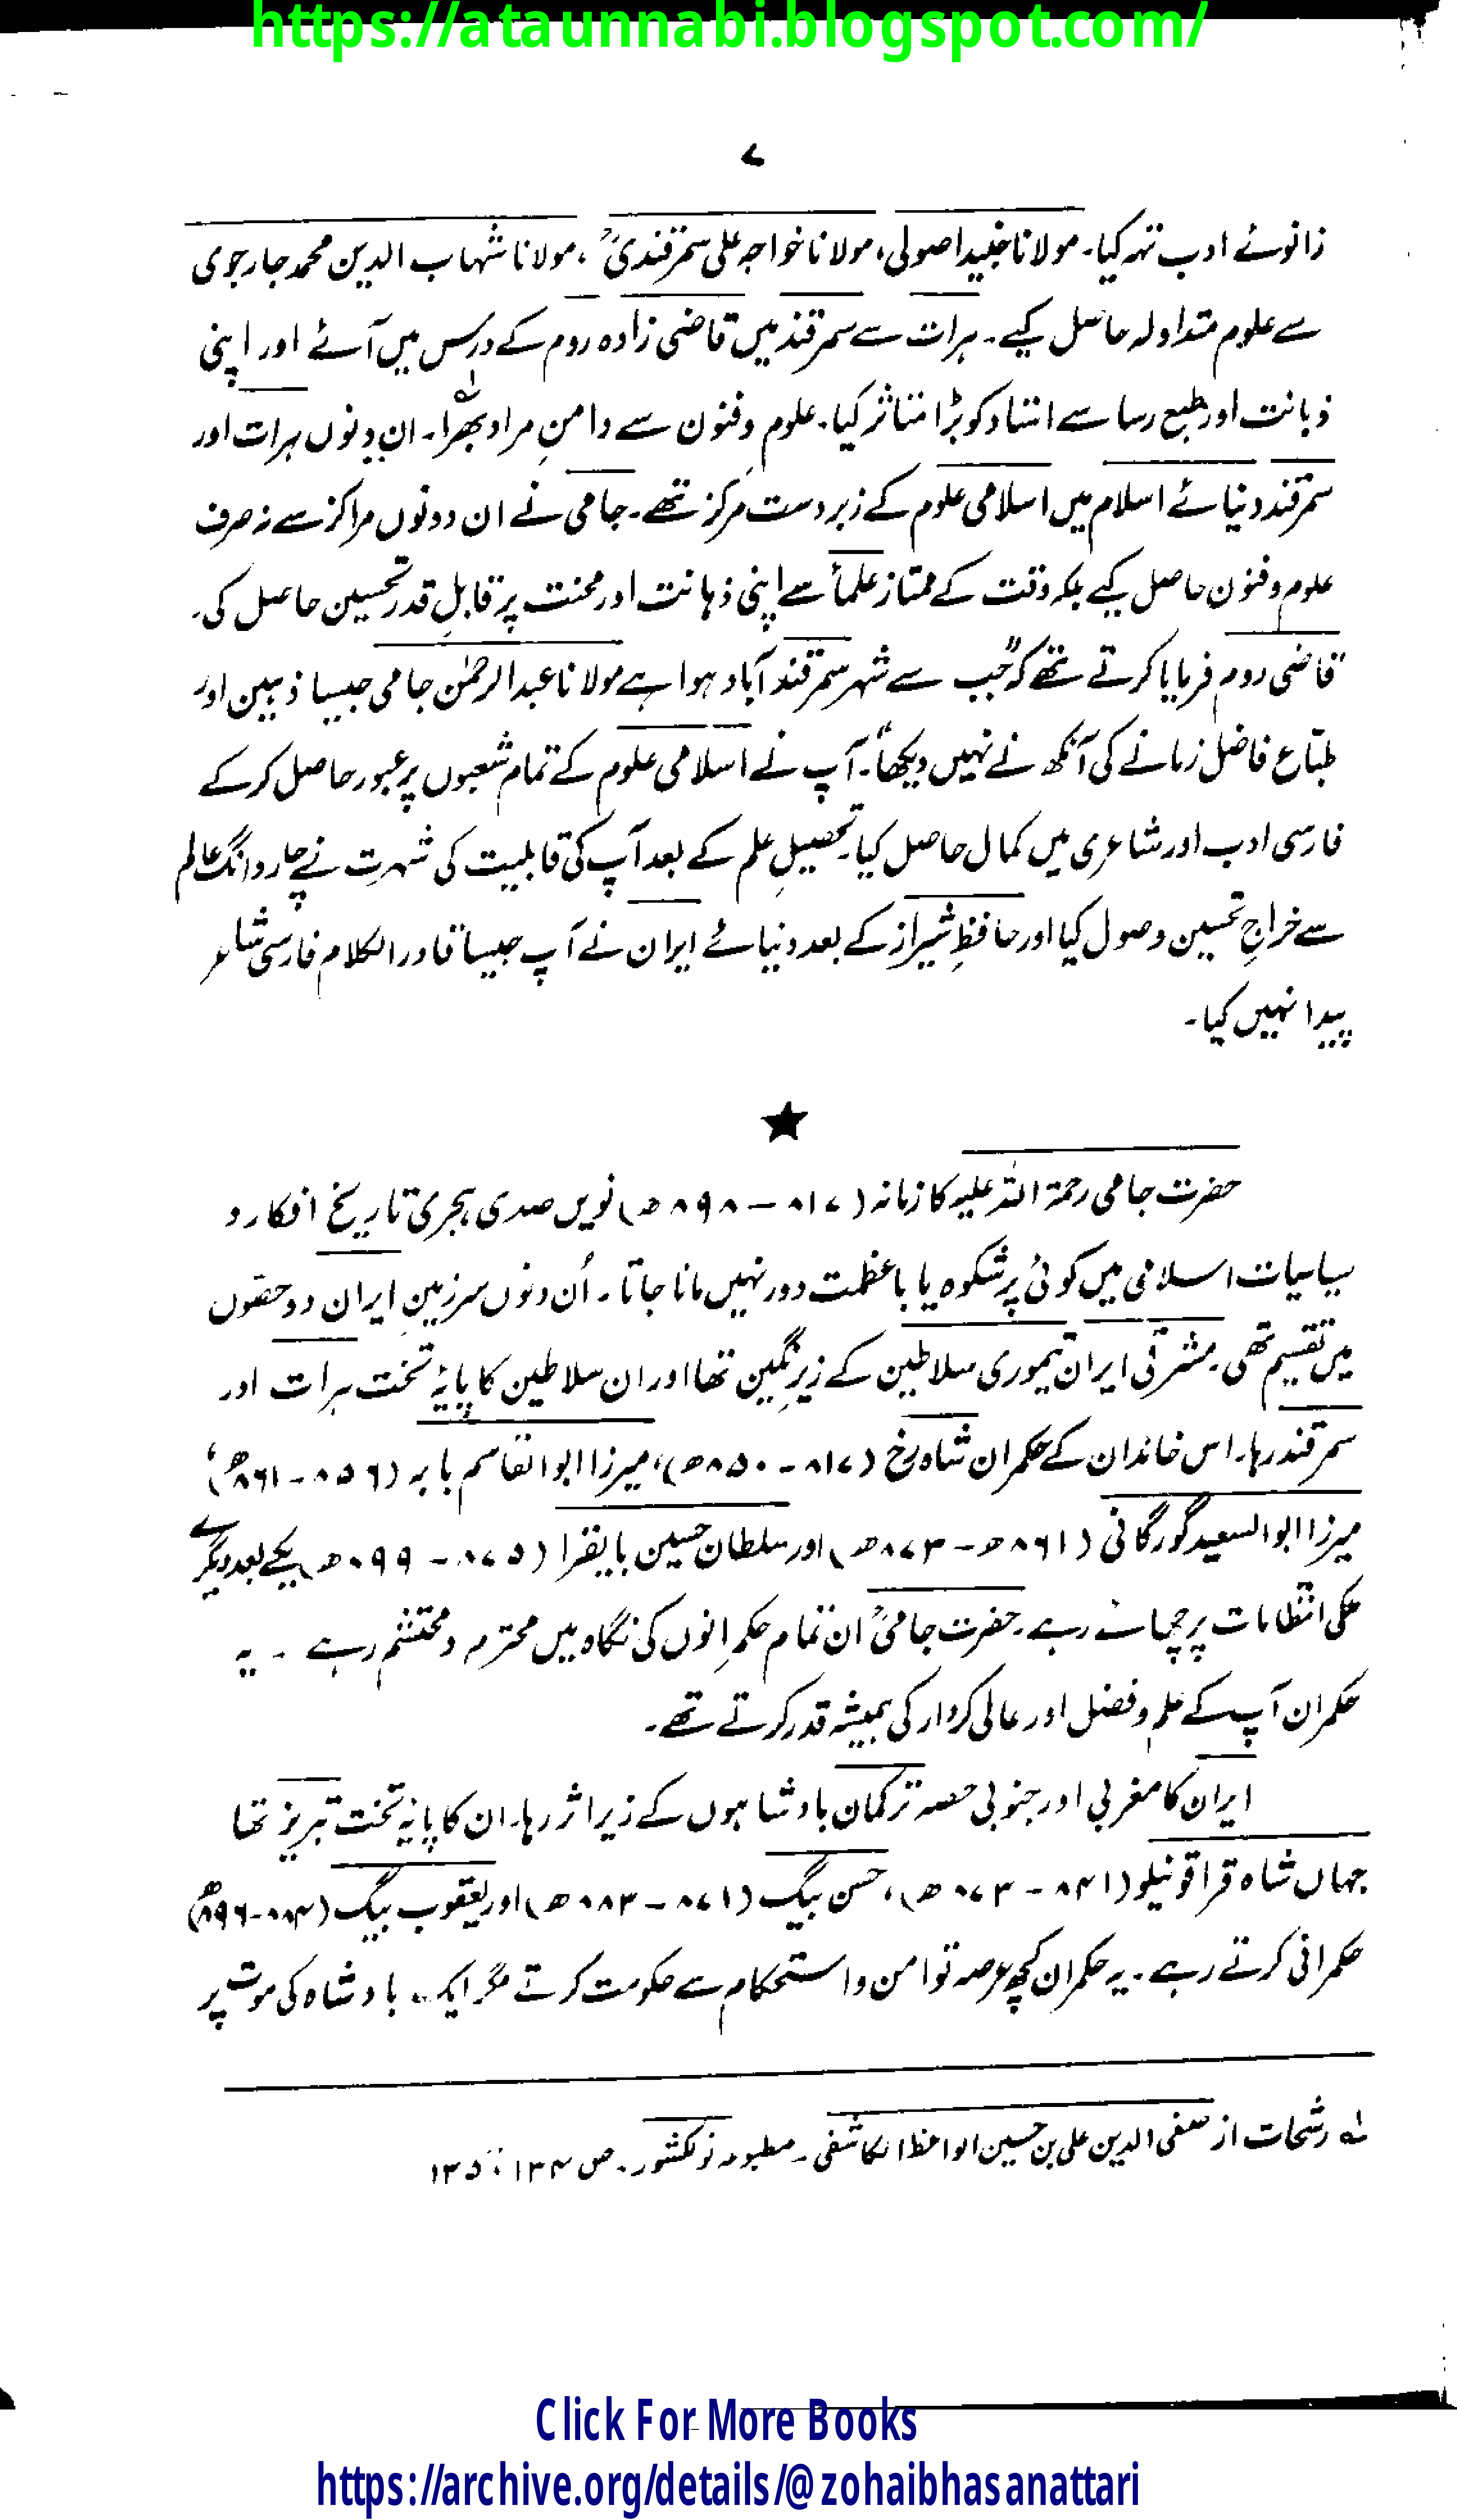 https://ataunnabi.blogspot.com/
۷
زانوئے ادب تہہ کیا۔ مولانا جنید اصولی، مولانا خواجہ علی سمرقندیؒ، مولانا شہاب الدین محمد جارجوی
سے علوم متداولہ حاصل کیے۔ ہرات سے سمرقند میں قاضی زادہ روم کے درس میں آئے اور اپنی
ذہانت اور طبع رسا سے استاد کو بڑا متاثر کیا۔ علوم و فنون سے دامنِ مراد بھرا۔ ان دنوں ہرات اور
سمرقند دنیائے اسلام میں اسلامی علوم کے زبردست مرکز تھے۔ جامی نے ان دونوں مراکز سے نہ صرف
علوم و فنون حاصل کیے بلکہ وقت کے ممتاز علماء سے اپنی ذہانت اور محنت پر قابلِ قدر تحسین حاصل کی۔
قاضی روم فرمایا کرتے تھے کہ "جب سے شہر سمرقند آباد ہوا ہے مولانا عبدالرحمٰن جامی جیسا ذہین اور
طبّاع فاضل زمانے کی آنکھ نے نہیں دیکھا"۔ آپ نے اسلامی علوم کے تمام شعبوں پر عبور حاصل کر کے
فارسی ادب اور شاعری میں کمال حاصل کیا۔ تحصیلِ علم کے بعد آپ کی قابلیت کی شہرت نے چار دانگ عالم
سے خراجِ تحسین وصول کیا اور حافظِ شیراز کے بعد دنیائے ایران نے آپ جیسا قادر الکلام فارسی شاعر
پیدا نہیں کیا۔
★
حضرت جامی رحمۃ اللہ علیہ کا زمانہ (۸۱۷ – ۸۹۸ھ) نویں صدی ہجری تاریخ افکار و
سیاسیات اسلامی میں کوئی پرشکوہ یا باعظمت دور نہیں مانا جاتا۔ اُن دنوں سرزمینِ ایران دو حصّوں
میں تقسیم تھی۔ مشرقی ایران تیموری سلاطین کے زیرِ نگین تھا اور ان سلاطین کا پایۂ تخت ہرات اور
سمرقند رہا۔ اس خاندان کے حکمران شاہ رخ (۸۱۷ – ۸۵۰ھ)، میرزا ابوالقاسم بابر (۸۵۶ – ۸۶۱ھ)،
میرزا ابوالسعید گورگانی (۸۶۱ھ – ۸۷۳ھ) اور سلطان حسین بایقرا (۸۷۵ – ۸۹۹ھ) یکے بعد دیگرے
ملکی انتظامات پر چھائے رہے۔ حضرت جامیؒ ان تمام حکمرانوں کی نگاہ میں محترم و محتشم رہے ۔ یہ
حکمران آپ کے علم و فضل اور عالی کردار کی ہمیشہ قدر کرتے تھے۔
ایران کا مغربی اور جنوبی حصہ ترکمان بادشاہوں کے زیر اثر رہا۔ ان کا پایۂ تخت تبریز تھا
جہاں شاہ قراقونیلو (۸۴۱ – ۸۷۳ھ)، حسن بیگ (۸۷۱ – ۸۸۳ھ) اور یعقوب بیگ (۸۸۴-۸۹۶ھ)
حکمرانی کرتے رہے۔ یہ حکمران کچھ عرصہ تو امن و استحکام سے حکومت کرتے مگر ایک بادشاہ کی موت پر
لہ رشحات از صفی الدین علی بن حسین الواعظ الکاشفی۔ مطبوعہ نولکشور۔ ص ۱۳۴، ۱۳۵
Click For More Books
https://archive.org/details/@zohaibhasanattari